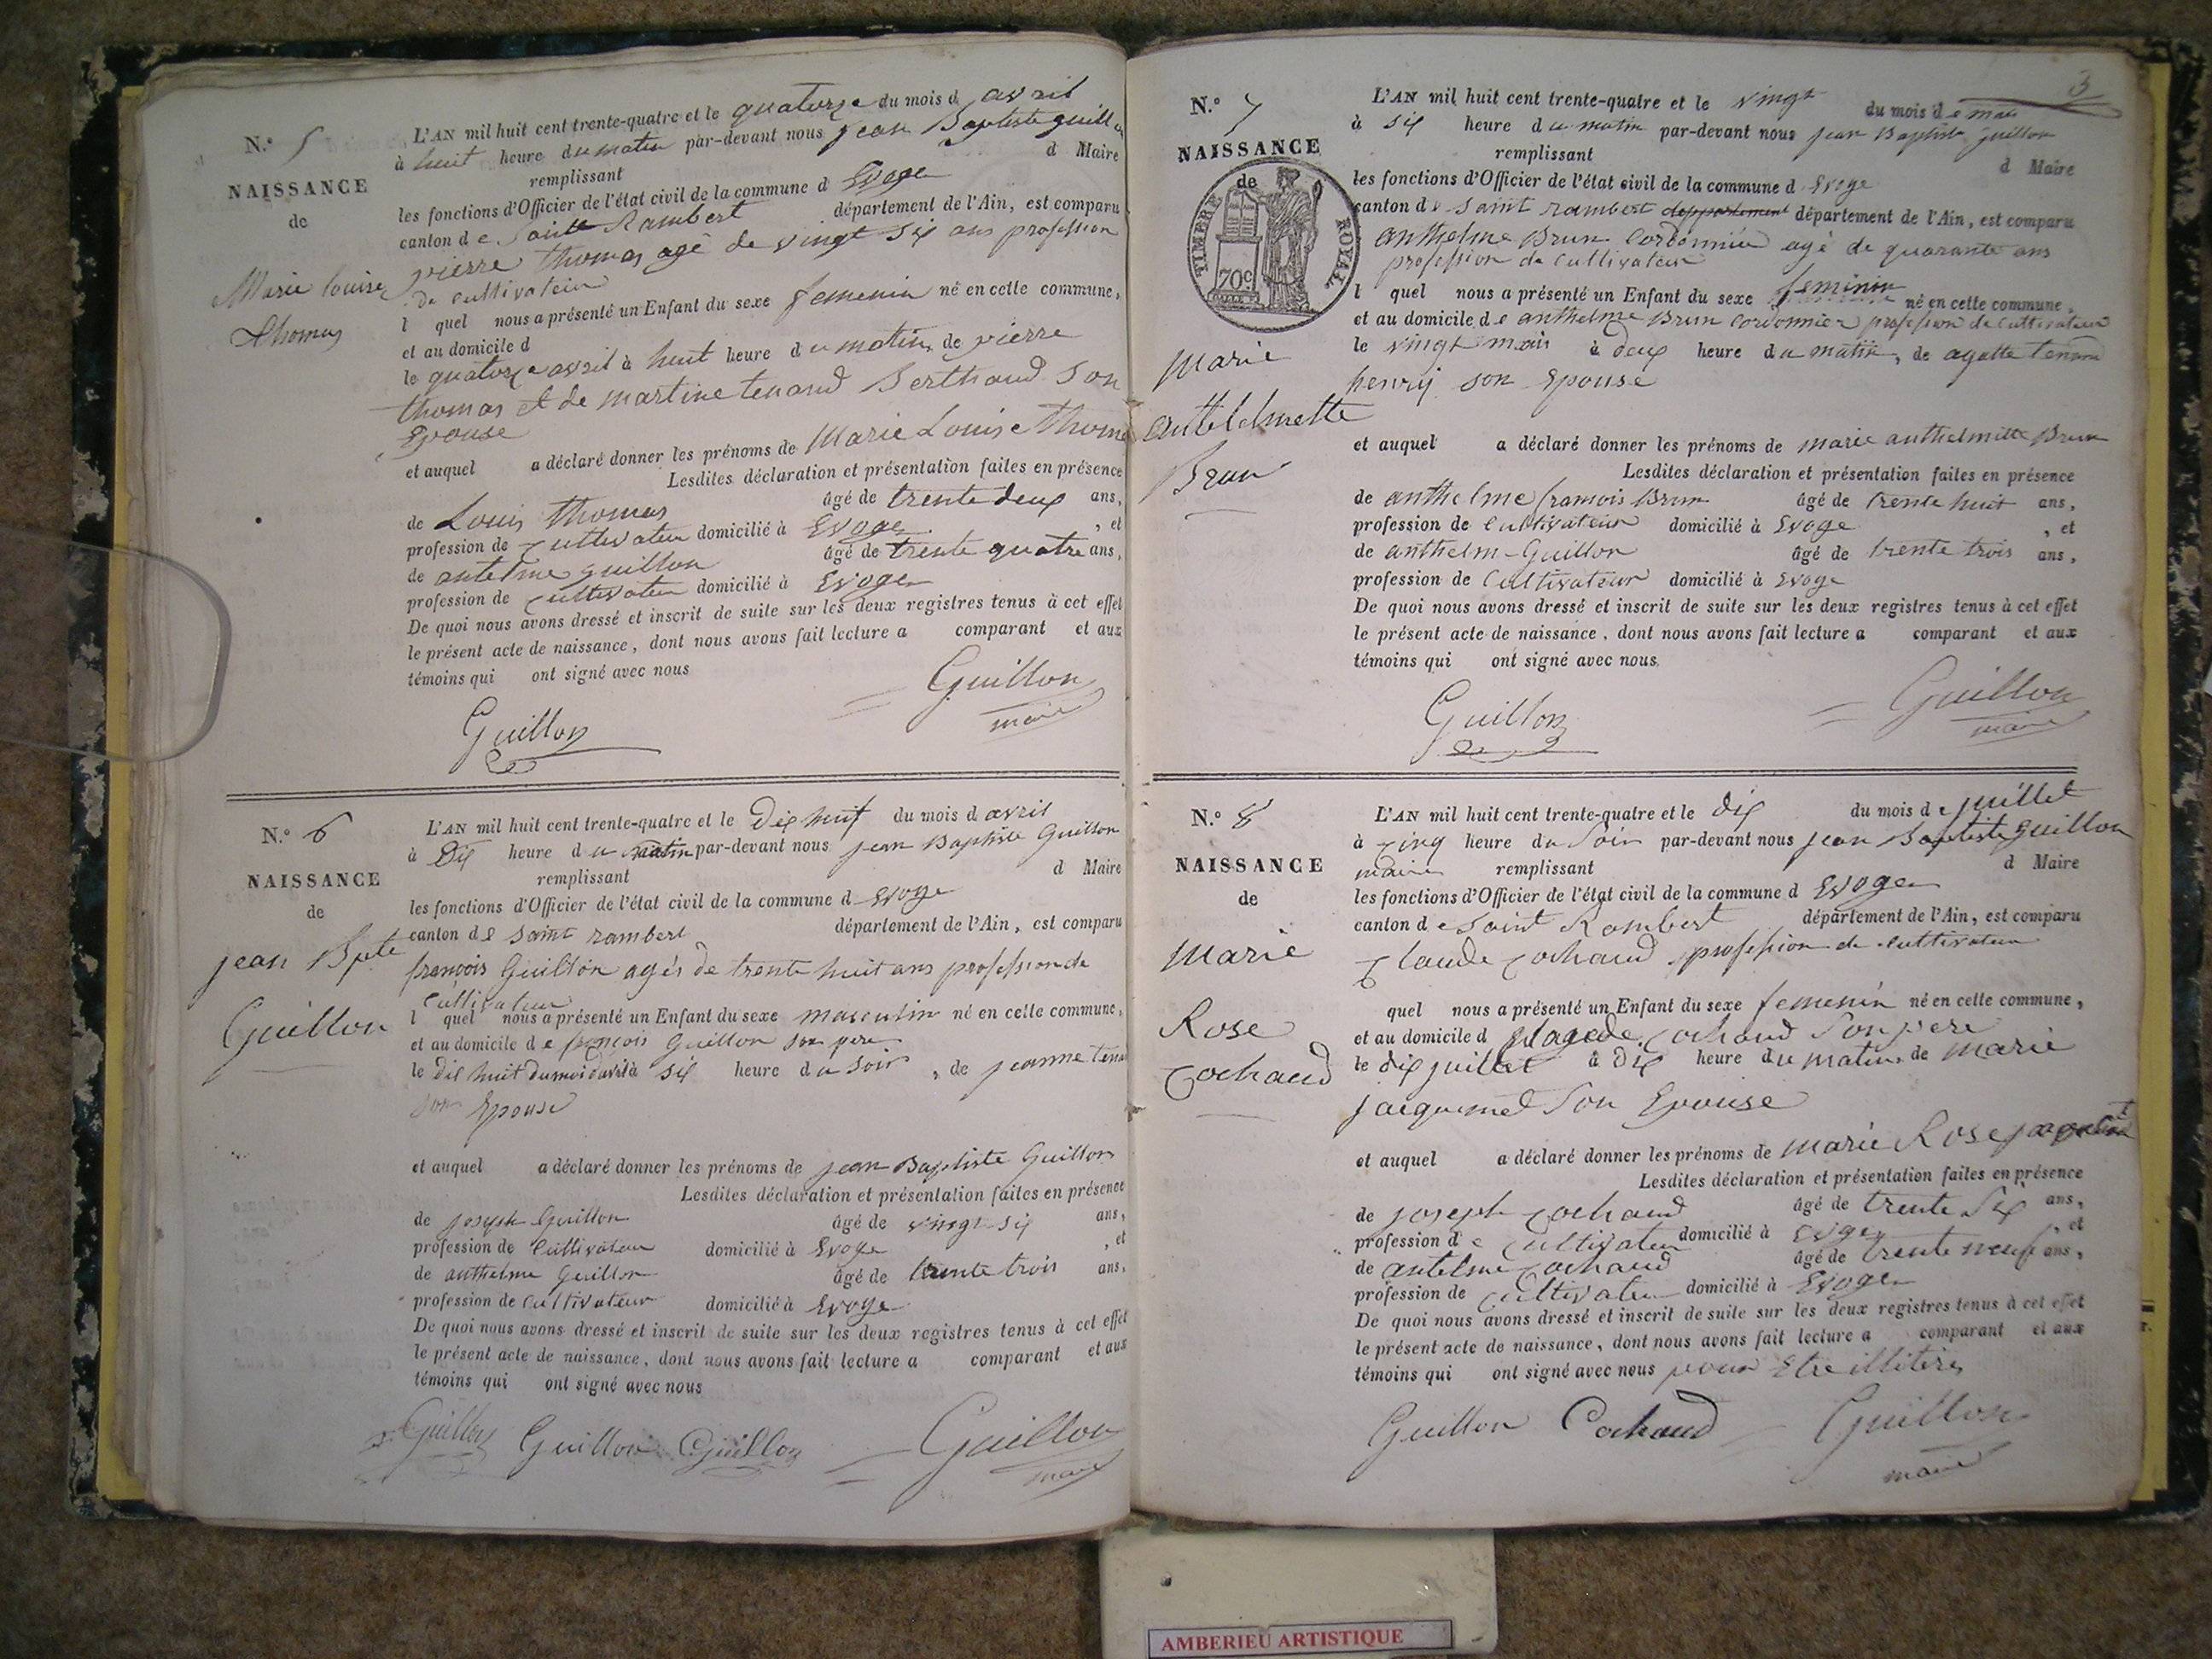 N.o 5
NAISSANCE
de
Marie louise
Thomas
L'AN mil huit cent trente-quatre et le quatorze du mois d avril
à huit heure du matin par-devant nous jean Baptiste guillon
remplissant d Maire
les fonctions d'Officier de l'état civil de la commune d Evoge
canton de Saint Rambert département de l'Ain, est comparu
pierre thomas agé de vingt six ans profession
de cultivateur
l quel nous a présenté un Enfant du sexe femenin né en cette commune,
et au domicile d
le quatorze avril à huit heure du matin, de pierre
thomas et de martine tenand Berthaud son
Epouse
et auquel a déclaré donner les prénoms de Marie Louise Thomas
Lesdites déclaration et présentation faites en présence
de Louis thomas âgé de trente deux ans,
profession de cultivateur domicilié à Evoge , et
de antelme guillon âgé de trente quatre ans,
profession de cultivateur domicilié à Evoge
De quoi nous avons dressé et inscrit de suite sur les deux registres tenus à cet effet
le présent acte de naissance, dont nous avons fait lecture a comparant et aux
témoins qui ont signé avec nous
Guillon
Guillon
maire
N.o 6
NAISSANCE
de
jean Bpte
Guillon
L'AN mil huit cent trente-quatre et le Dix huit du mois d avril
à Dix heure du matin par-devant nous jean Baptiste Guillon
remplissant d Maire
les fonctions d'Officier de l'état civil de la commune d Evoge
canton de saint rambert département de l'Ain, est comparu
françois Guillon agés de trente huit ans profession de
cultivateur
l quel nous a présenté un Enfant du sexe masculin né en cette commune,
et au domicile de françois Guillon son pere
le dix huit du moi davril à six heure du soir, de jeanne tenand
son Epouse
et auquel a déclaré donner les prénoms de jean Baptiste Guillon
Lesdites déclaration et présentation faites en présence
de joseph Guillon âgé de vingt six ans,
profession de Cultivateur domicilié à Evoge , et
de anthelme Guillon âgé de trente trois ans,
profession de Cultivateur domicilié à Evoge
De quoi nous avons dressé et inscrit de suite sur les deux registres tenus à cet effet
le présent acte de naissance, dont nous avons fait lecture a comparant et aux
témoins qui ont signé avec nous
Guillon Guillon Guillon Guillon
maire
3
N.o 7
NAISSANCE
de
TIMBRE ROYAL
70c.
Marie
anthelmette
Brun
L'AN mil huit cent trente-quatre et le vingt du mois de mai
à six heure du matin par-devant nous jean Baptiste guillon
remplissant d Maire
les fonctions d'Officier de l'état civil de la commune d Evoge
canton de saint rambert département de l'Ain, est comparu
anthelme Brun Cordonnier agé de quarante ans
profession de Cultivateur
l quel nous a présenté un Enfant du sexe feminin né en cette commune,
et au domicile de anthelme Brun Cordonnier profession de Cultivateur
le vingt mai à deux heure du matin, de agatte tenand
henry son Epouse
et auquel a déclaré donner les prénoms de marie anthelmitte Brun
Lesdites déclaration et présentation faites en présence
de anthelme francois Brun âgé de trente huit ans,
profession de Cultivateur domicilié à Evoge , et
de anthelm Guillon âgé de trente trois ans,
profession de Cultivateur domicilié à Evoge
De quoi nous avons dressé et inscrit de suite sur les deux registres tenus à cet effet
le présent acte de naissance, dont nous avons fait lecture a comparant et aux
témoins qui ont signé avec nous
Guillon
Guillon
maire
N.o 8
NAISSANCE
de
Marie
Rose
Cochaud
L'AN mil huit cent trente-quatre et le dix du mois de juillet
à cinq heure du Soir par-devant nous jean Baptiste guillon
maire remplissant d Maire
les fonctions d'Officier de l'état civil de la commune d Evoge
canton de Saint Rambert département de l'Ain, est comparu
Claude Cochaud profession de cultivateur
quel nous a présenté un Enfant du sexe femenin né en cette commune,
et au domicile d Claude Cochaud Son pere
le dix juillet à dix heure du matin, de marie
jacquemet Son Epouse
et auquel a déclaré donner les prénoms de marie Rose
Lesdites déclaration et présentation faites en présence
de joseph Cochaud âgé de trente Six ans,
profession de cultivateur domicilié à Evoge , et
de antelme Cochaud âgé de trente neuf ans,
profession de cultivateur domicilié à Evoge
De quoi nous avons dressé et inscrit de suite sur les deux registres tenus à cet effet
le présent acte de naissance, dont nous avons fait lecture a comparant et aux
témoins qui ont signé avec nous pour Etre illitéres
Guillon Cochaud Guillon
maire
AMBERIEU ARTISTIQUE